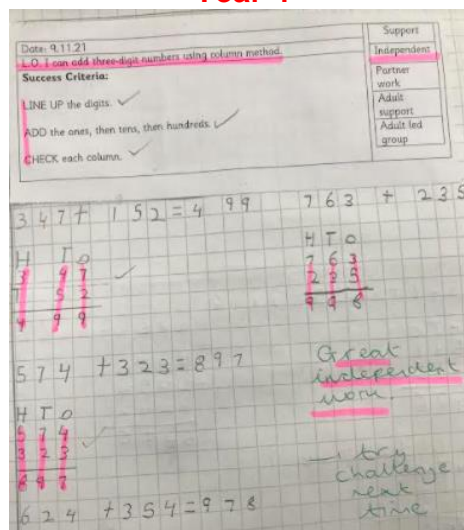 Date: 9.11.21
L.O. I can add three-digit numbers using column method.
Success Criteria:
LINE UP the digits.
ADD the ones, then tens, then hundreds.
CHECK each column.
Support
Independent
Partner work
Adult support
Adult led group
347 + 152 = 499
H T O
3 4 7
1 5 2
4 9 9
763 + 235
H T O
7 6 3
2 3 5
9 9 8
574 + 323 = 897
H T O
5 7 4
3 2 3
8 9 7
Great
independent
work!
624 + 354 = 978
try
challenge
next
time